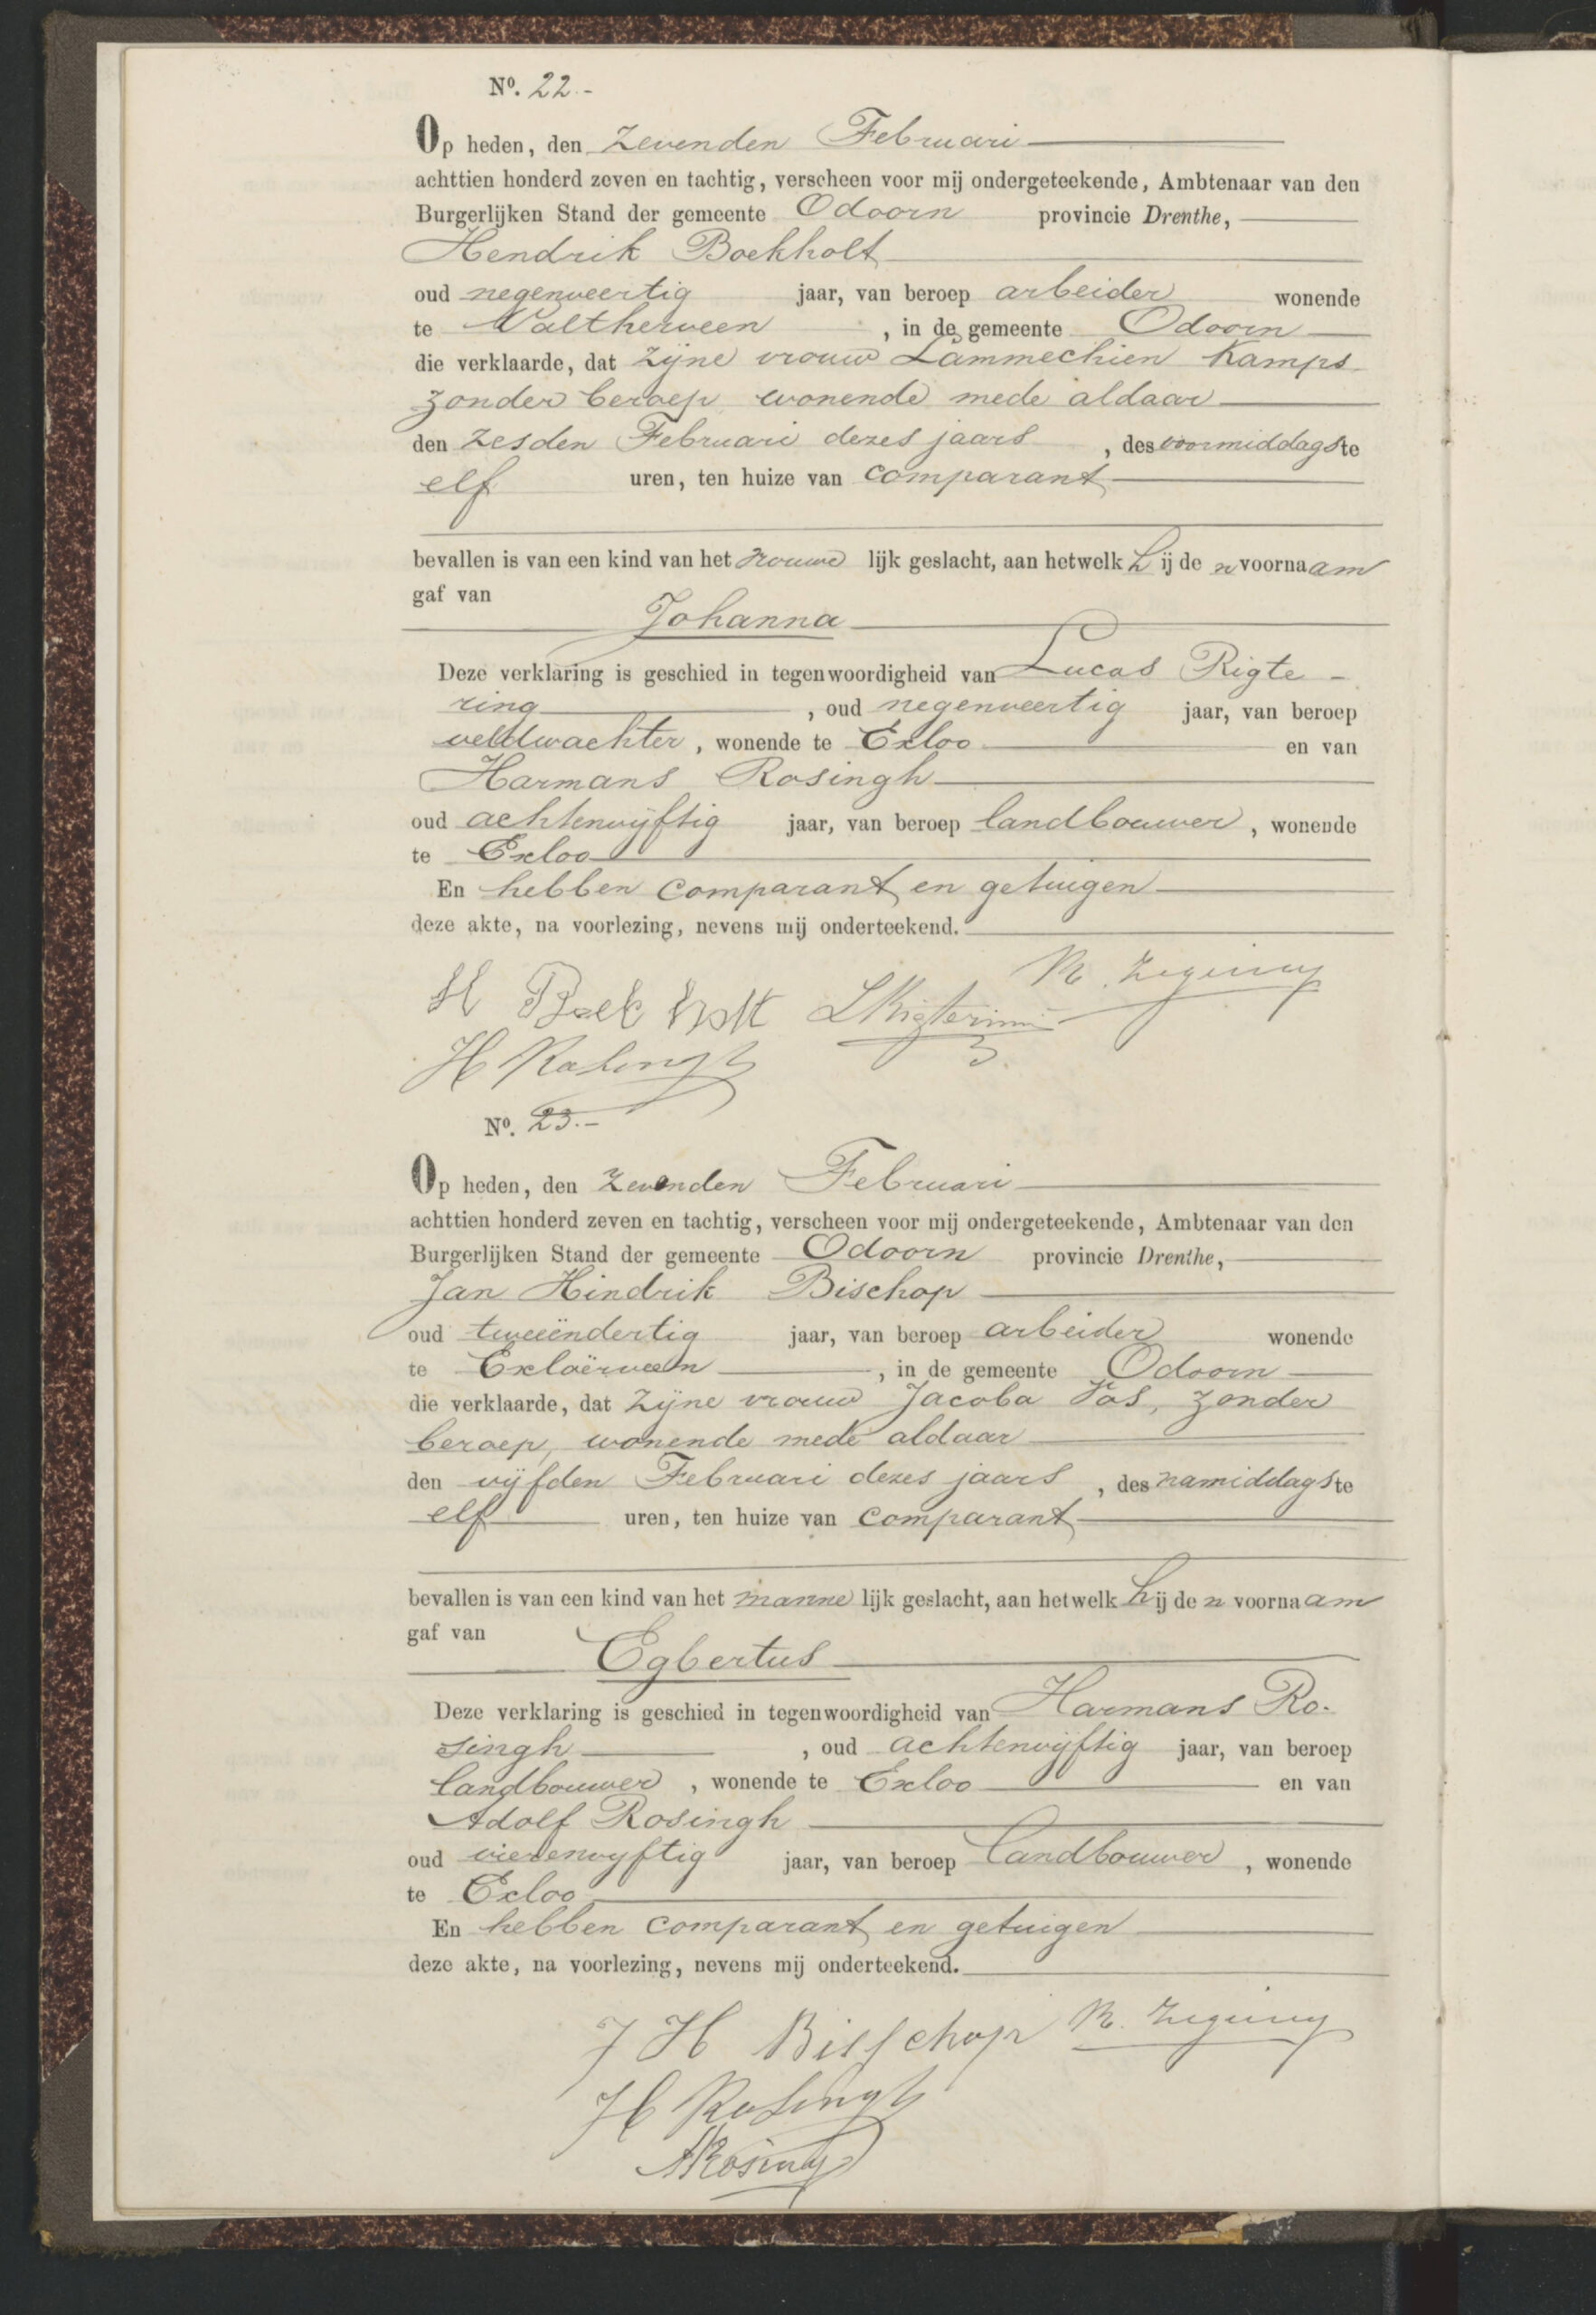 Nº. 22.-
Op heden, den Zevenden Februari
achttien honderd zeven en tachtig, verscheen voor mij ondergeteekende, Ambtenaar van den
Burgerlijken Stand der gemeente Odoorn provincie Drenthe,
Hendrik Boekholt
oud negenveertig jaar, van beroep arbeider wonende
te Valtherveen, in de gemeente Odoorn
die verklaarde, dat zijne vrouw Lammechien Kamps
zonder beroep wonende mede aldaar
den zesden Februari dezes jaars, des voormiddags te
elf uren, ten huize van comparant
bevallen is van een kind van het vrouwelijk geslacht, aan hetwelk hij den voornaam
gaf van
Johanna
Deze verklaring is geschied in tegenwoordigheid van Lucas Rigte-
ring, oud negenveertig jaar, van beroep
veldwachter, wonende te Exloo en van
Harmans Rosingh
oud achtenvijftig jaar, van beroep landbouwer, wonende
te Exloo
En hebben comparant en getuigen
deze akte, na voorlezing, nevens mij onderteekend.
H Boekholt LRigtering
H Rosingh
Nº. 23.-
Op heden, den Zevenden Februari
achttien honderd zeven en tachtig, verscheen voor mij ondergeteekende, Ambtenaar van den
Burgerlijken Stand der gemeente Odoorn provincie Drenthe,
Jan Hindrik Bischop
oud tweeëndertig jaar, van beroep arbeider wonende
te Exloërveen, in de gemeente Odoorn
die verklaarde, dat zijne vrouw Jacoba Vos, zonder
beroep, wonende mede aldaar
den vijfden Februari dezes jaars, des namiddags te
elf uren, ten huize van comparant
bevallen is van een kind van het mannelijk geslacht, aan hetwelk hij den voornaam
gaf van
Egbertus
Deze verklaring is geschied in tegenwoordigheid van Harmans Ro-
singh, oud achtenvijftig jaar, van beroep
landbouwer, wonende te Exloo en van
Adolf Rosingh
oud vierenvyftig jaar, van beroep landbouwer, wonende
te Exloo
En hebben comparant en getuigen
deze akte, na voorlezing, nevens mij onderteekend.
J H Bisschop
H Rosingh
ARosingh